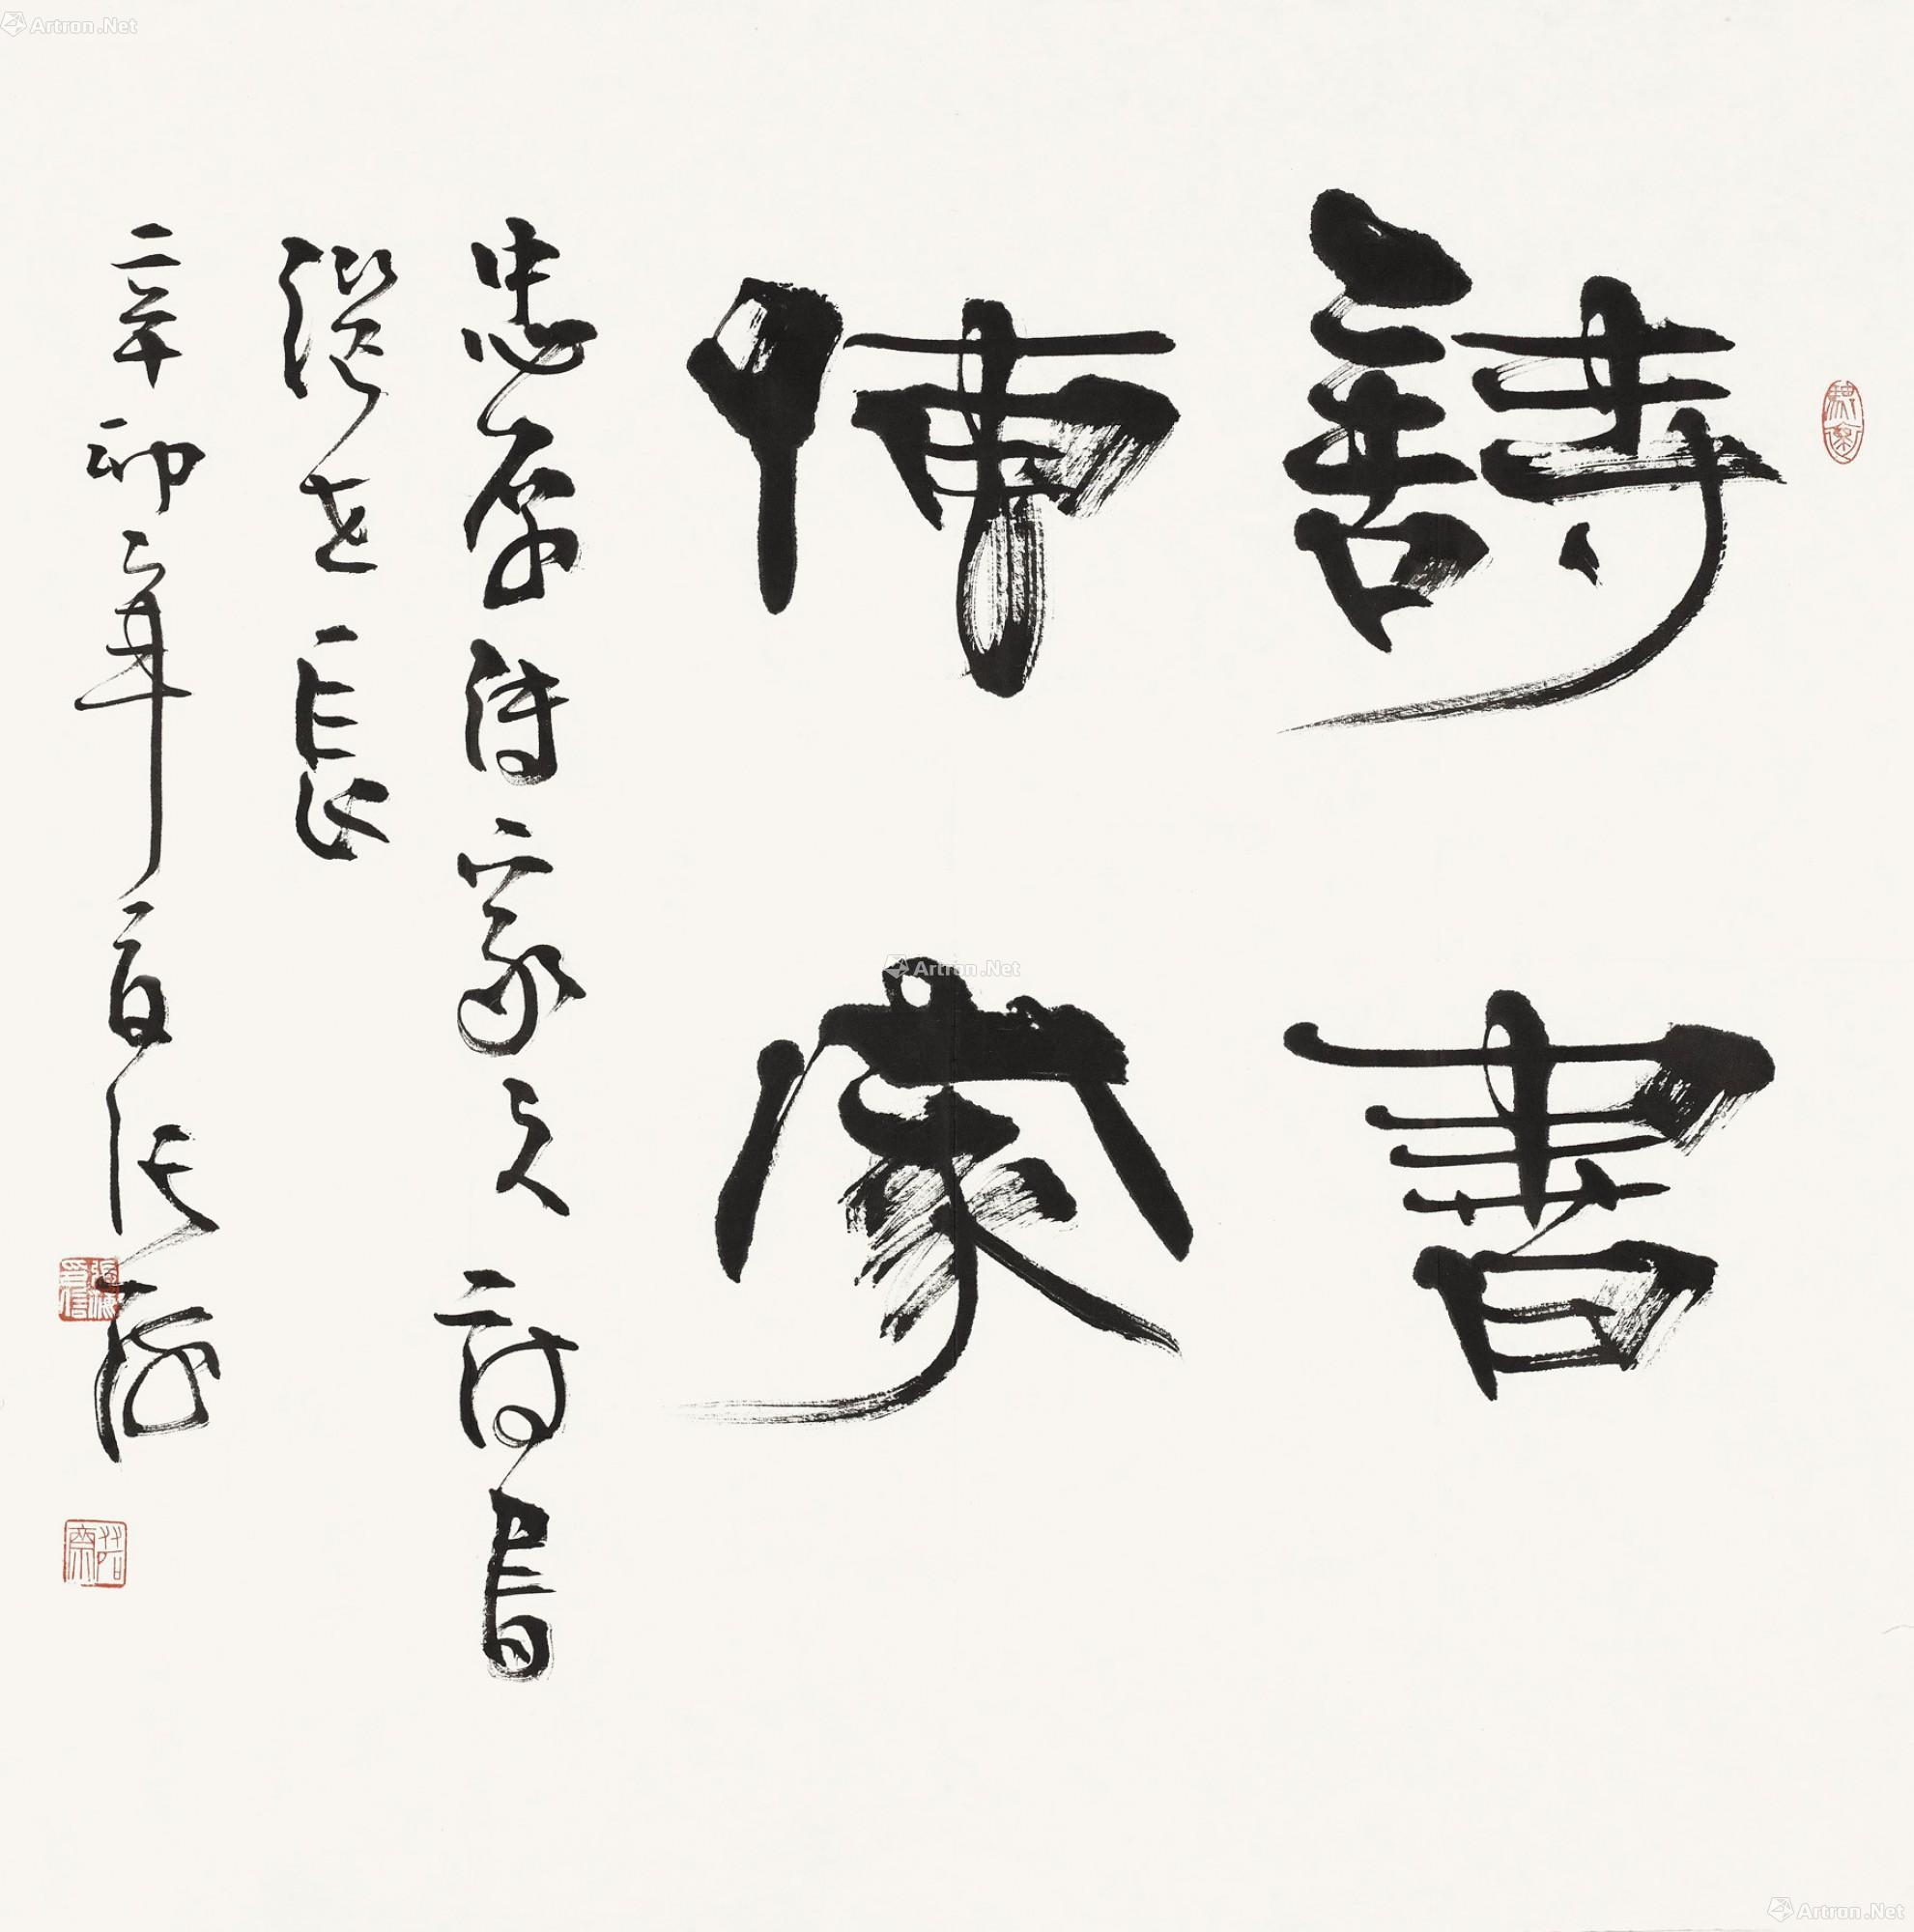 詩書
傳家
忠厚傳家久詩書
繼世長
辛卯年夏張海
張海
印信
Artron.Net
Artron.Net
Artron.Net